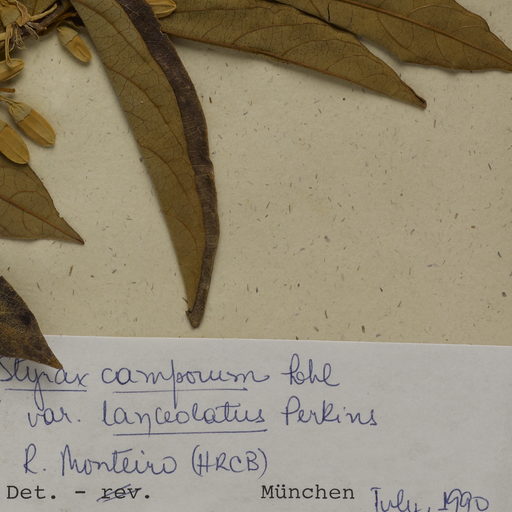 Styrax camporum Pohl
var. lanceolatus Perkins
R. Monteiro (HRCB)
Det. - rev. München July, 1990